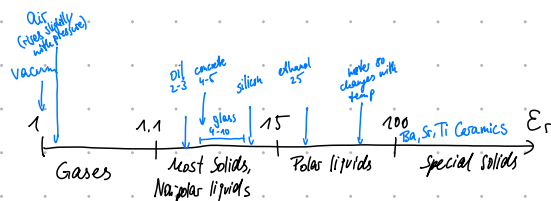 air
(rises slightly
with pressure)
vacuum
oil
2-3
concrete
4-5
glass
4-10
silicon
ethanol
25
water 80
changes with
temp
1
1.1
15
100
εr
Ba, Sr, Ti Ceramics
Gases
Most Solids,
Nonpolar liquids
Polar liquids
Special solids